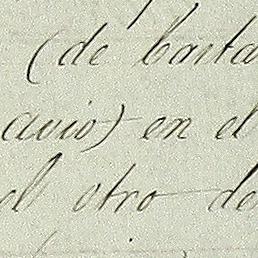 (de basta
avio) en el
el otro de